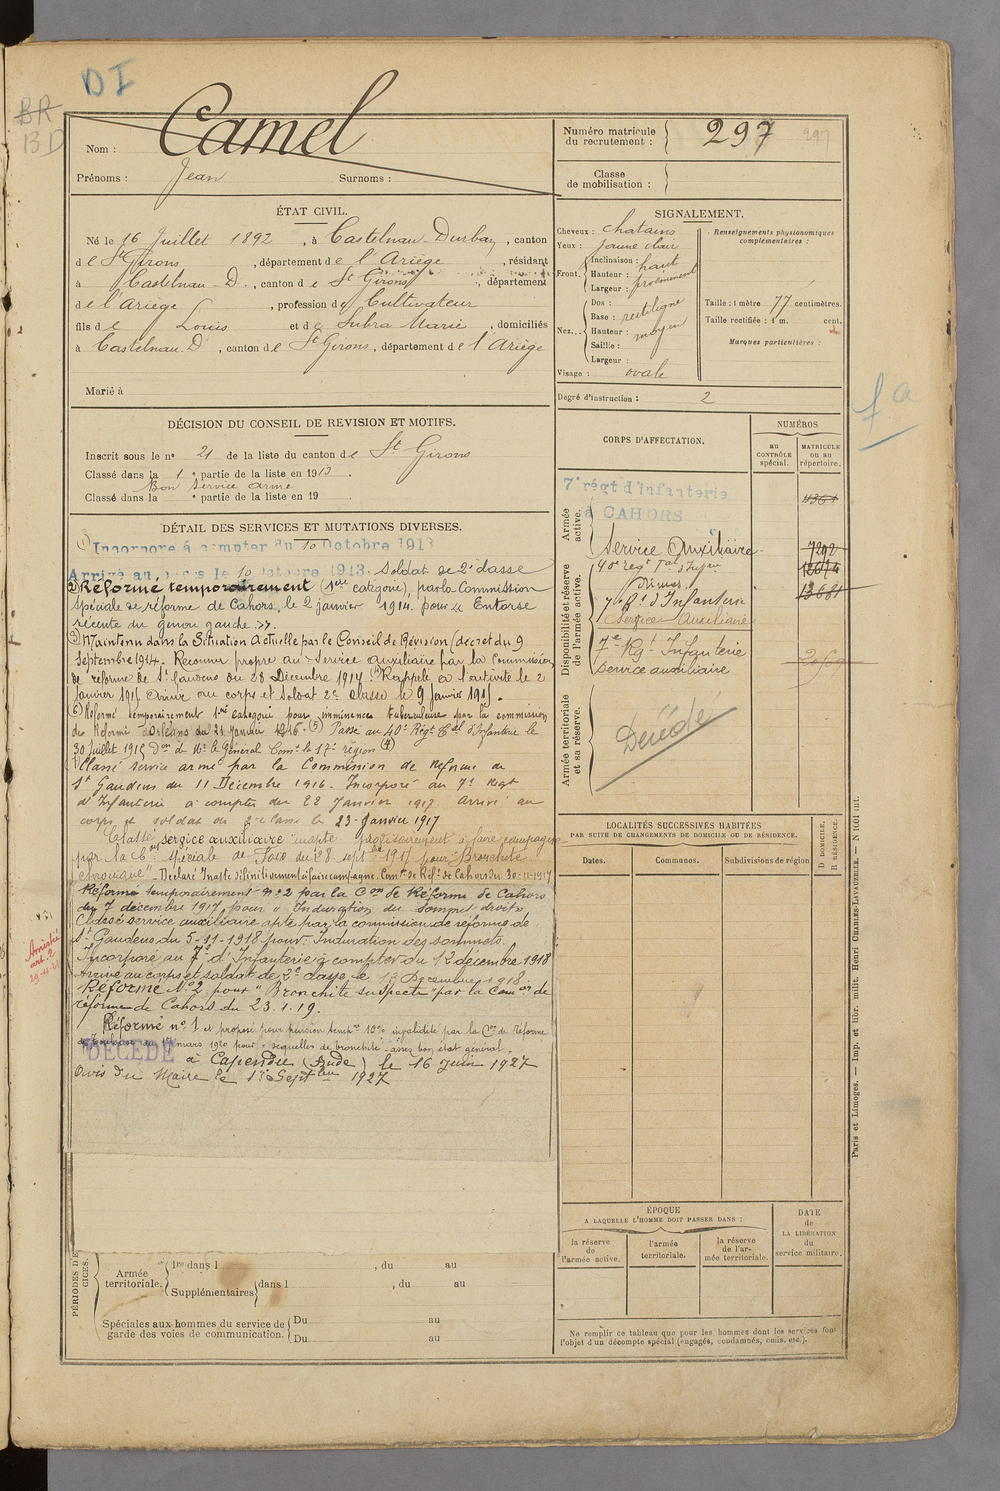 DI
BR
BD
Camel
Nom :
Prénoms : Jean Surnoms :
Numéro matricule
du recrutement : 297 297
Classe
de mobilisation :
ÉTAT CIVIL.
Né le 16 Juillet 1892, à Castelnau-Durban, canton
de St Girons, département de l'Ariège, résidant
à Castelnau-D., canton de St Girons, département
de l'Ariège, profession de Cultivateur
fils de Louis et de Subra Marie, domiciliés
à Castelnau D., canton de St Girons, département de l'Ariège
Marié à
SIGNALEMENT.
Cheveux : chatains
Yeux : jaune clair
Front. Inclinaison : haut
Hauteur : proéminent
Largeur :
Nez. Dos :
Base : rectiligne
Hauteur : moyen
Saillie :
Largeur :
Visage : ovale
Renseignements physionomiques
complémentaires :
Taille : 1 mètre 77 centimètres.
Taille rectifiée : 1 m. cent.
Marques particulières :
Degré d'instruction : 2
DÉCISION DU CONSEIL DE REVISION ET MOTIFS.
Inscrit sous le no 21 de la liste du canton de St Girons
Classé dans la 1e partie de la liste en 1913.
Bon Service armé
Classé dans la e partie de la liste en 19
DÉTAIL DES SERVICES ET MUTATIONS DIVERSES.
(1) Incorporé à compter du 10 Octobre 1913
Arrivé au corps le 10 Octobre 1913. Soldat de 2e classe
(2) Réformé temporairement (1ère catégorie), par la Commission
spéciale de réforme de Cahors, le 2 janvier 1914 pour « Entorse
récente du genou gauche. »
(3) Maintenu dans la Situation Actuelle par le Conseil de Révision (décret du 9
Septembre 1914. Reconnu propre au service auxiliaire par la Commission
de réforme de St Gaudens du 28 Décembre 1914 Rappelé à l'activité le 2
Janvier 1915 Arrivé au corps et Soldat 2e Classe le 9 Janvier 1915.
(6) Réformé temporairement 1ère catégorie pour imminence tuberculeuse par la commission
de Réforme d'Orléans du 21 Janvier 1916. (5) Passé au 40e Régt Tal d'Infanterie le
30 Juillet 1915 Don de Mr le Général Comt la 17e région (4)
Classé service armé par la Commission de Réforme de
St Gaudens du 11 Décembre 1916. Incorporé au 7e Régt
d'Infanterie à compter du 22 Janvier 1917. Arrivé au
corps et soldat de 2e classe le 23 Janvier 1917
Classé service auxiliaire inapte provisoirement à faire campagne
par la Con spéciale de Foix du 28 septbre 1917 pour "Bronchite
chronique" - Déclaré Inapte définitivement à faire campagne. Comon de Réf. de Cahors du 30-11-1917
Réformé temporairement no 2 par la Con de Réforme de Cahors
du 7 décembre 1917, pour " Induration du sommet droit
Classé service auxiliaire apte par la commission de réforme de
St Gaudens du 5-11-1918 pour Induration des sommets.
Incorporé au 7e d'Infanterie à compter du 12 décembre 1918
Arrivé au corps et soldat de 2e classe le 13 Décembre 1918.
Réformé No 2 pour "Bronchite suspecte" par la Comon de
réforme de Cahors du 23.1.19.
Réformé no 1 et proposé pour pension tempre 10% invalidité par la Con de Réforme
de Toulouse du mars 1920 pour : séquelles de bronchite - assez bon état général.
DÉCÉDÉ à Capendu (Aude) le 16 juin 1927
Avis du Maire le 13 Septbre 1927
Amnistié
art. 2
CORPS D'AFFECTATION.
NUMÉROS
au
CONTRÔLE
spécial.
MATRICULE
OU au
répertoire.
Armée
active.
7e régt d'infanterie
à CAHORS
4361
Service Auxiliaire 7292
Disponibilité et réserve
de l'armée active.
40e regt Tal d'Infrie
Nimes
7e Rt d'Infanterie 13681
Service Auxiliaire
7e Rgt Infanterie
Service auxiliaire
Armée territoriale
et sa réserve.
Décédé
fa
LOCALITÉS SUCCESSIVES HABITÉES
PAR SUITE DE CHANGEMENTS DE DOMICILE OU DE RÉSIDENCE.
Dates. Communes. Subdivisions de région
D DOMICILE,
R RÉSIDENCE.
ÉPOQUE
A LAQUELLE L'HOMME DOIT PASSER DANS :
la réserve
de
l'armée active.
l'armée
territoriale.
la réserve
de l'ar-
mée territoriale.
DATE
de
LA LIBÉRATION
du
service militaire.
Ne remplir ce tableau que pour les hommes dont les services font
l'objet d'un décompte spécial (engagés, condamnés, omis, etc.).
PÉRIODES DE
CICES.
Armée
territoriale.
1re dans l , du au
Supplémentaires dans l , du au
Spéciales aux hommes du service de
garde des voies de communication.
Du au
Du au
Paris et Limoges. — Imp. et libr. milit. Henri CHARLES-LAVAUZELLE. — N 1001 int.